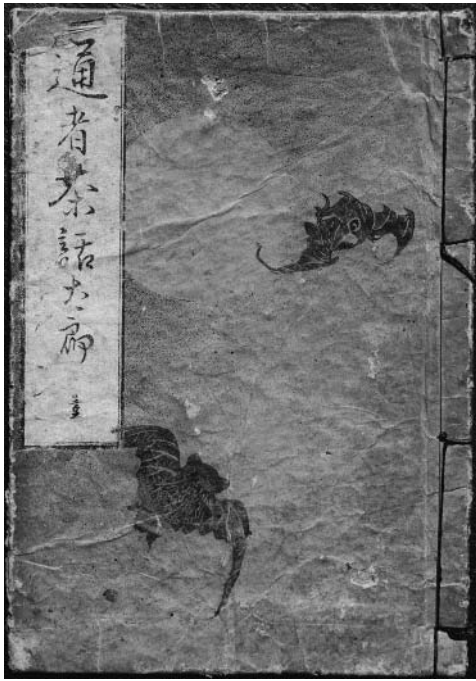 通者茶話太郎 壹